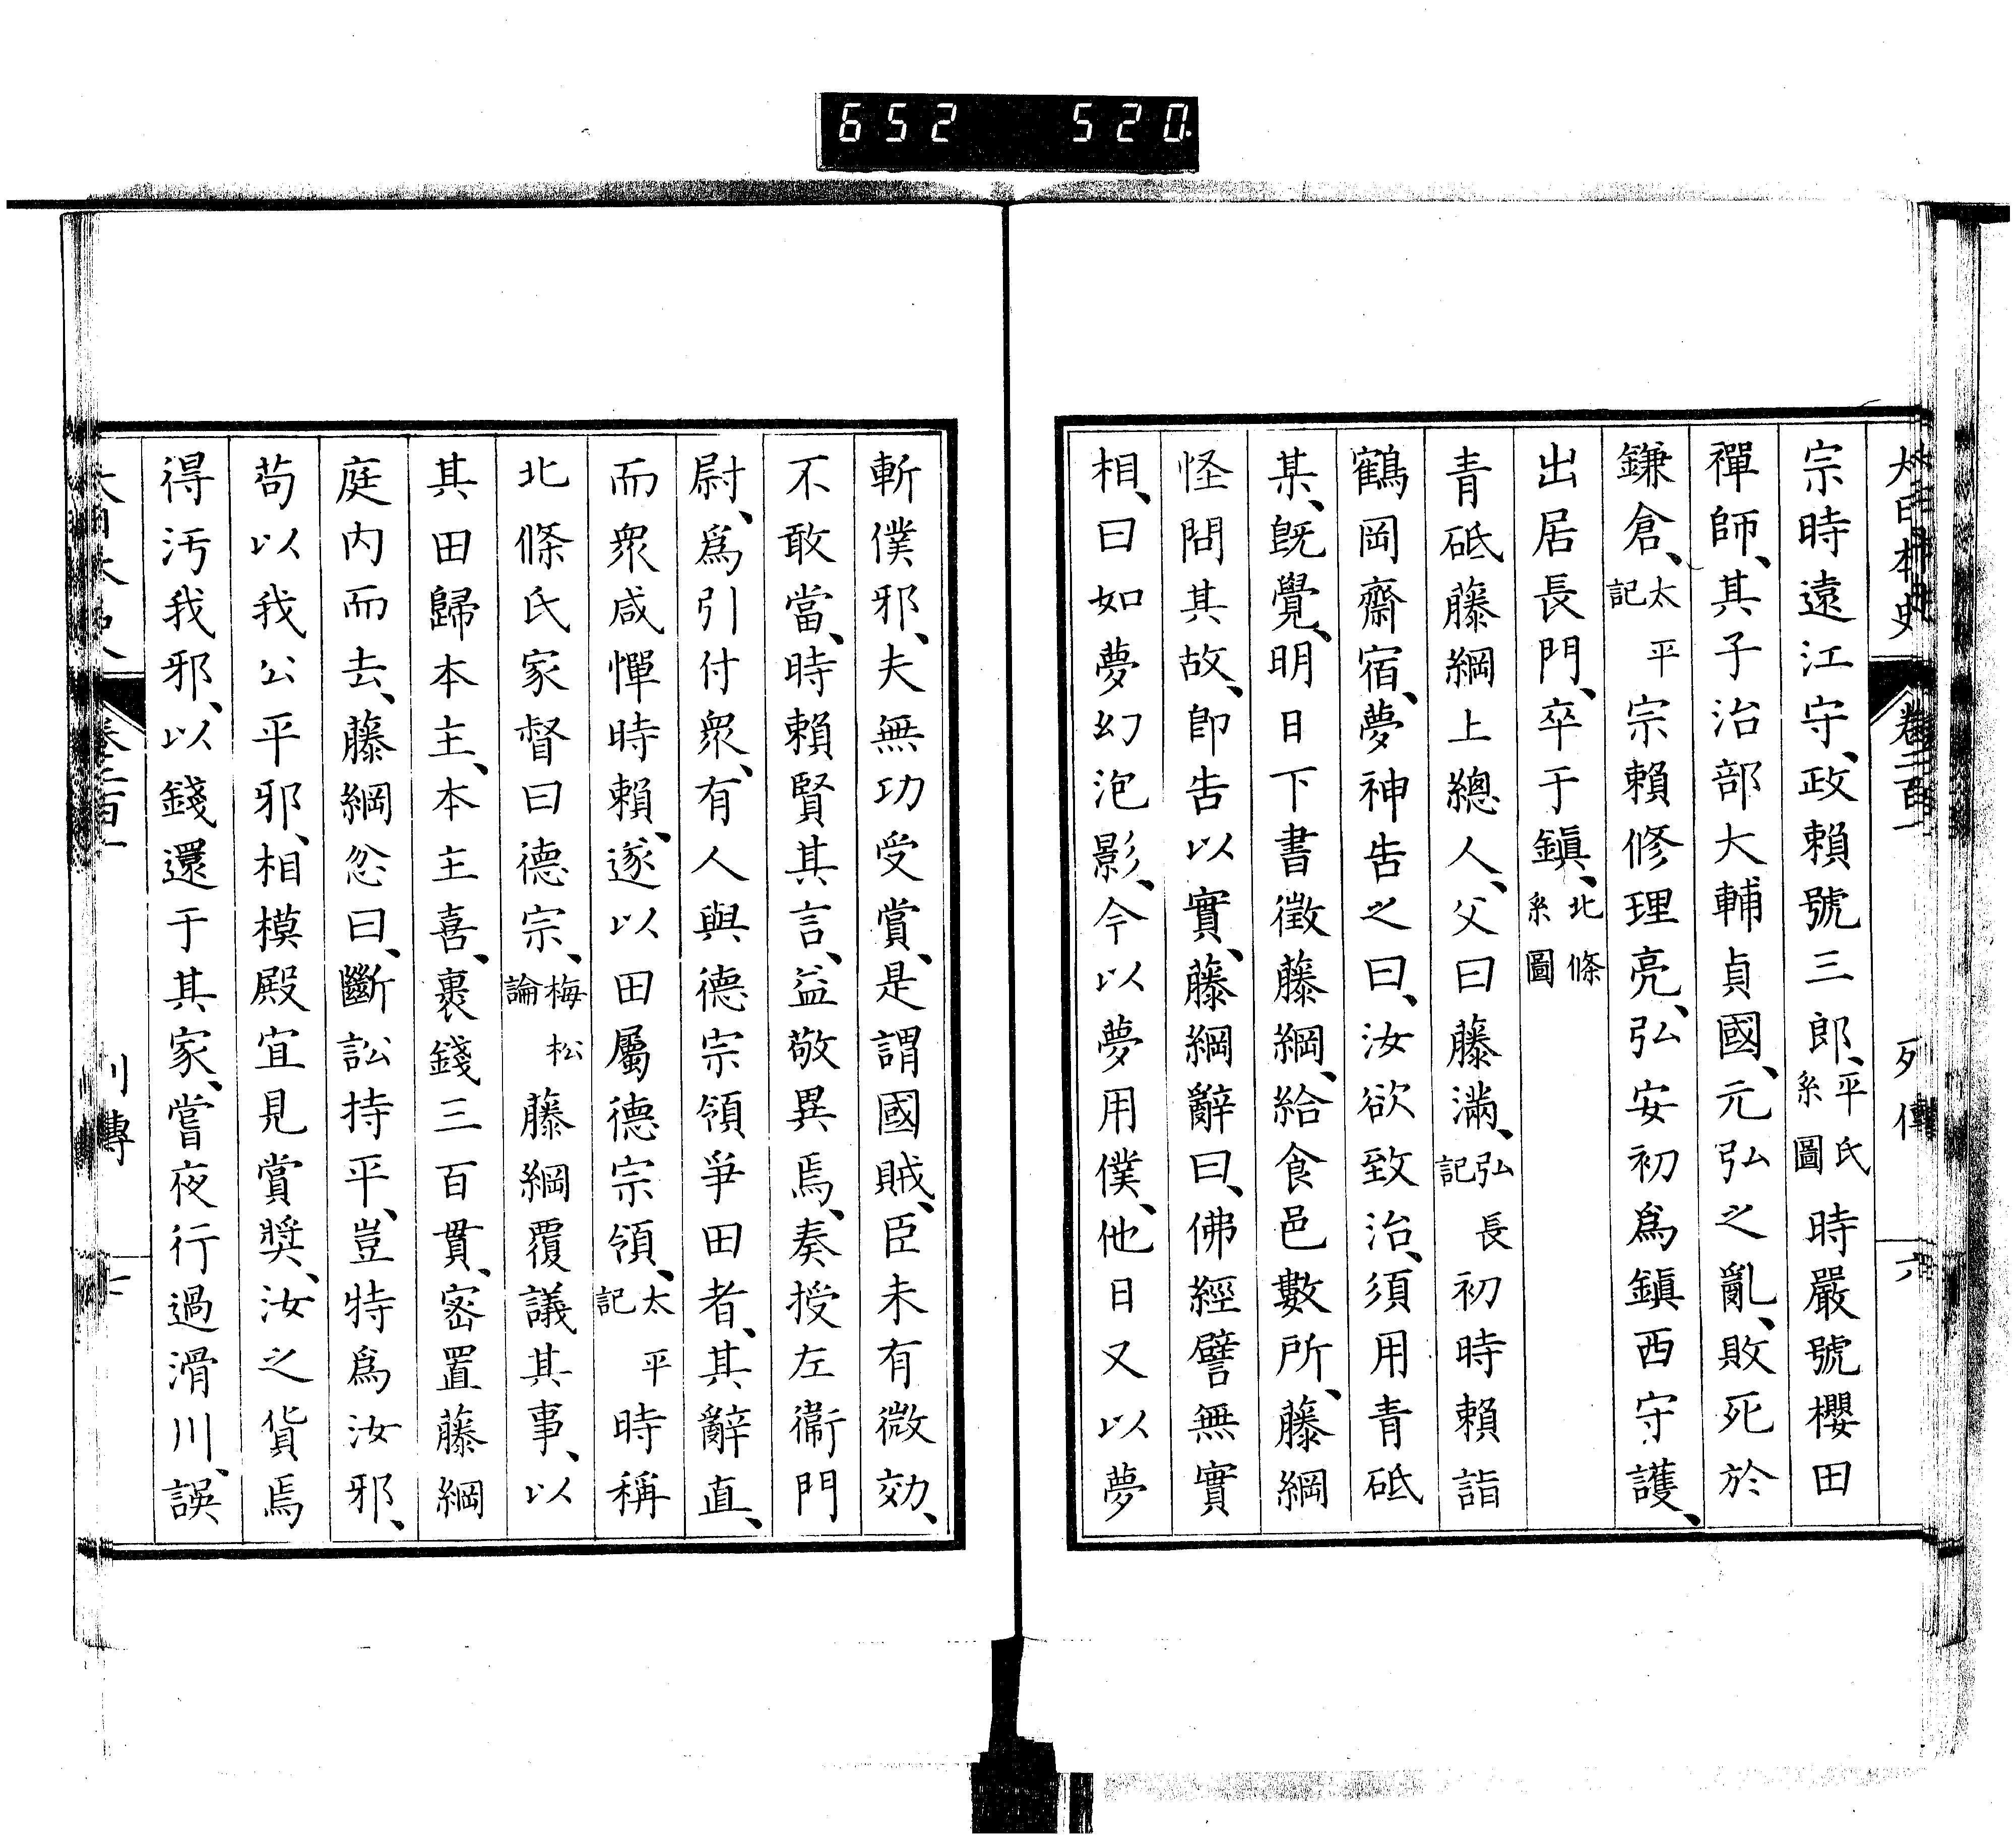 652 520.
大日本史 卷二百一 列傳 六
宗時遠江守、政賴號三郎、平氏系圖時嚴號櫻田
禪師、其子治部大輔貞國、元弘之亂、敗死於
鎌倉、太平記宗賴修理亮、弘安初爲鎭西守護、
出居長門、卒于鎭、北條系圖
青砥藤綱上總人、父曰藤滿、弘長記初時賴詣
鶴岡齋宿、夢神告之曰、汝欲致治、須用青砥
某、既覺、明日下書徵藤綱、給食邑數所、藤綱
怪問其故、卽告以實、藤綱辭曰、佛經譬無實
相、曰如夢幻泡影、今以夢用僕、他日又以夢
斬僕邪、夫無功受賞、是謂國賊、臣未有微効、
不敢當、時賴賢其言、益敬異焉、奏授左衞門
尉、爲引付衆、有人與德宗領爭田者、其辭直、
而衆咸憚時賴、遂以田屬德宗領、太平記時稱
北條氏家督曰德宗、梅松論藤綱覆議其事、以
其田歸本主、本主喜、裹錢三百貫、密置藤綱
庭內而去、藤綱忿曰、斷訟持平、豈特爲汝邪、
苟以我公平邪、相模殿宜見賞奬、汝之貨焉
得汚我邪、以錢還于其家、嘗夜行過滑川、誤
卷二百一 列傳 七